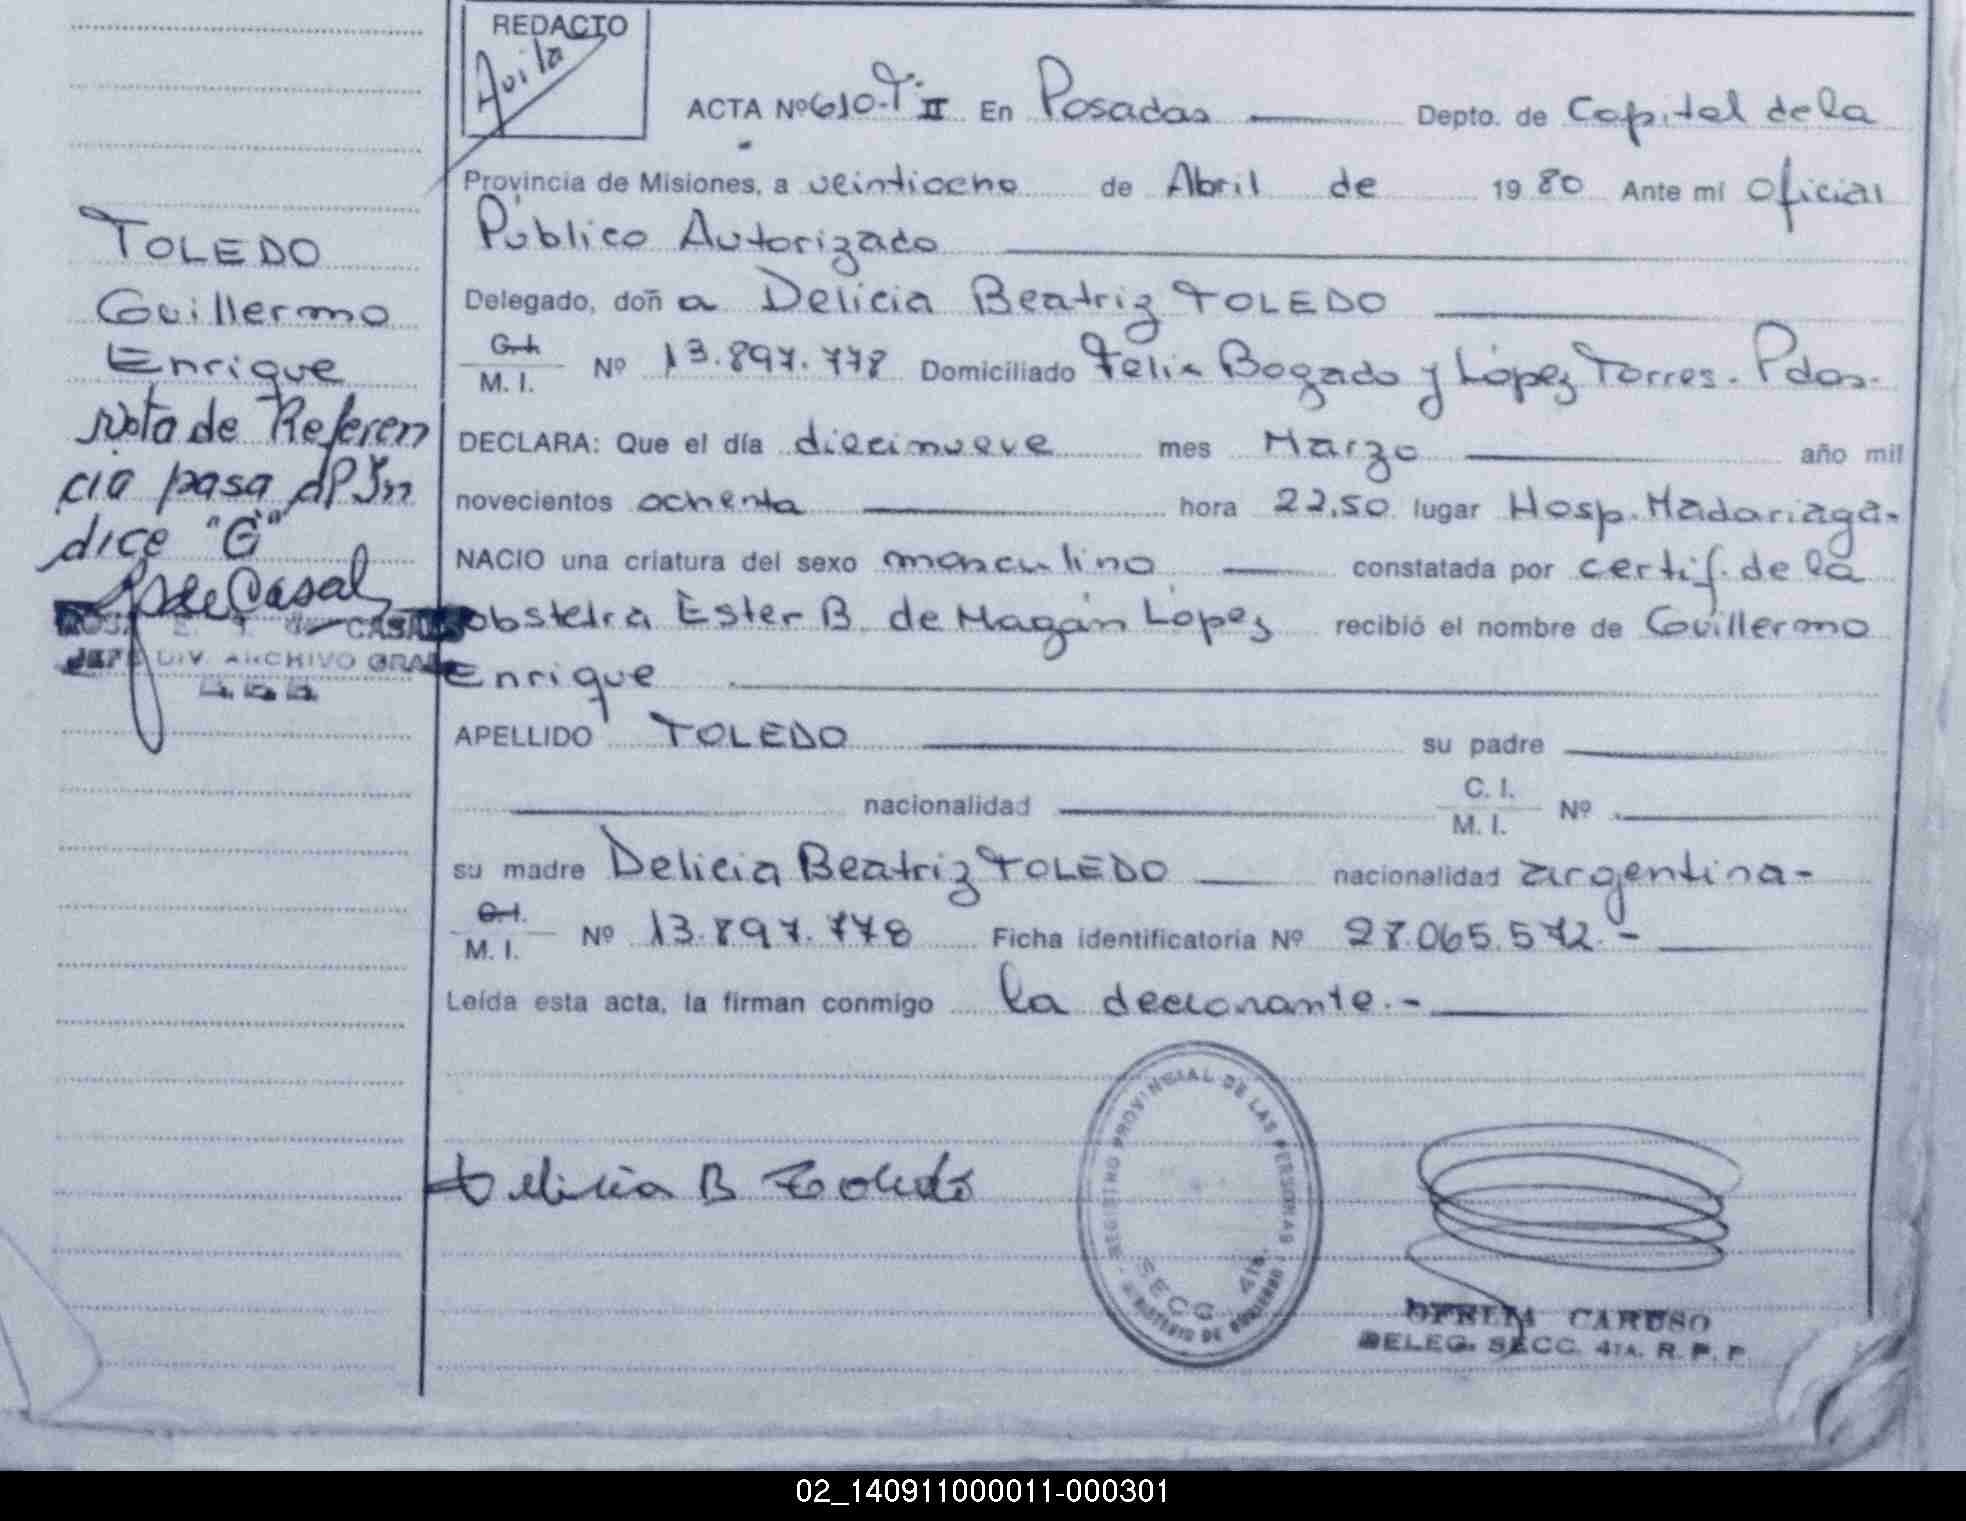 REDACTO
Avila
ACTA Nº 610-Tº II En Posadas Depto. de Capital de la
Provincia de Misiones, a veintiocho de Abril de 1980 Ante mi Oficial
Público Autorizado
Delegado, doña Delicia Beatriz TOLEDO
C.I.
M. I. Nº 13.897.778 Domiciliado Felix Bogado y López Torres. Pdas.
DECLARA: Que el día diecinueve mes Marzo año mil
novecientos ochenta hora 22,50 lugar Hosp. Madariaga-
NACIO una criatura del sexo masculino constatada por certif. de la
obstetra Ester B. de Magán López recibió el nombre de Guillermo
Enrique
APELLIDO TOLEDO su padre
nacionalidad C. I.
M. I. Nº
su madre Delicia Beatriz TOLEDO nacionalidad argentina-
C.I.
M. I. Nº 13.897.778 Ficha identificatoria Nº 27.065.572.-
Leída esta acta, la firman conmigo la declarante.-
TOLEDO
Guillermo
Enrique
Nota de Referen
cia pasa aPÍn
dice "G"
de Casal
CASAL
JEFE DIV. ARCHIVO GRAL
Delicia B Toledo
REGISTRO PROVINCIAL DE LAS PERSONAS
SECC. 4ta.
MINISTERIO DE GOBIERNO
OFELIA CARUSO
DELEG. SECC. 4TA. R. P. P.
02_140911000011-000301